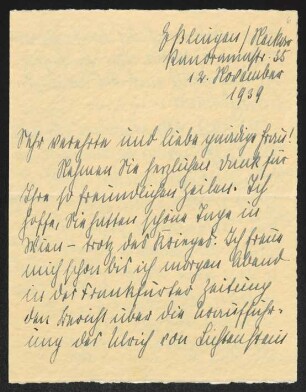 Eßlingen/Neckar
Panoramastr. 35
12. November
1939
Sehr verehrte und liebe gnädige Frau!
Nehmen Sie herzlichen Dank für
Ihre so freundlichen Zeilen. Ich
hoffe, Sie hatten schöne Tage in
Wien – trotz des Krieges. Ich freue
mich schon bis ich morgen Abend
in der Frankfurter Zeitung
den Bericht über die Urauffüh-
rung des Ulrich von Lichtenstein